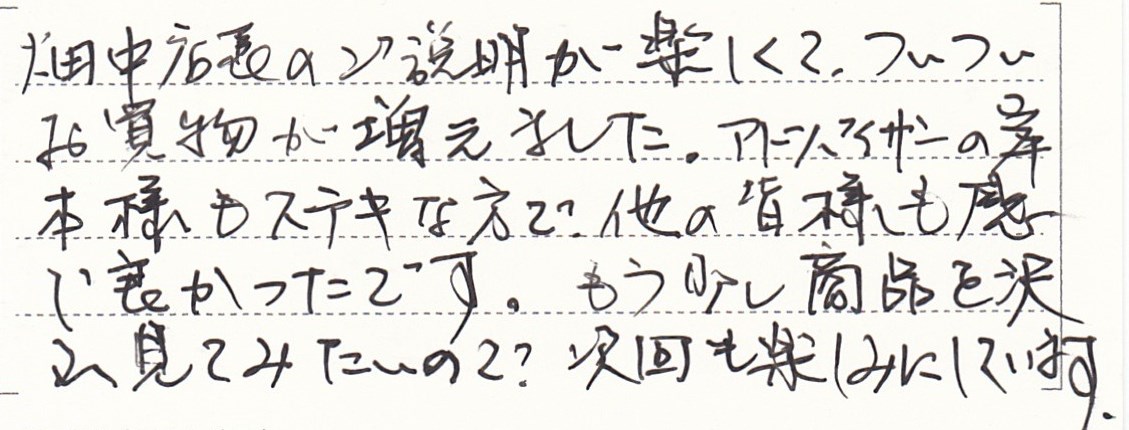 畑中店長のご説明が楽しくて、ついつい
お買物が増えました。アドバイザーの岸
本様もステキな方で、他の皆様も感
じ良かったです。もう少し商品を沢
山見てみたいので、次回も楽しみにしています。